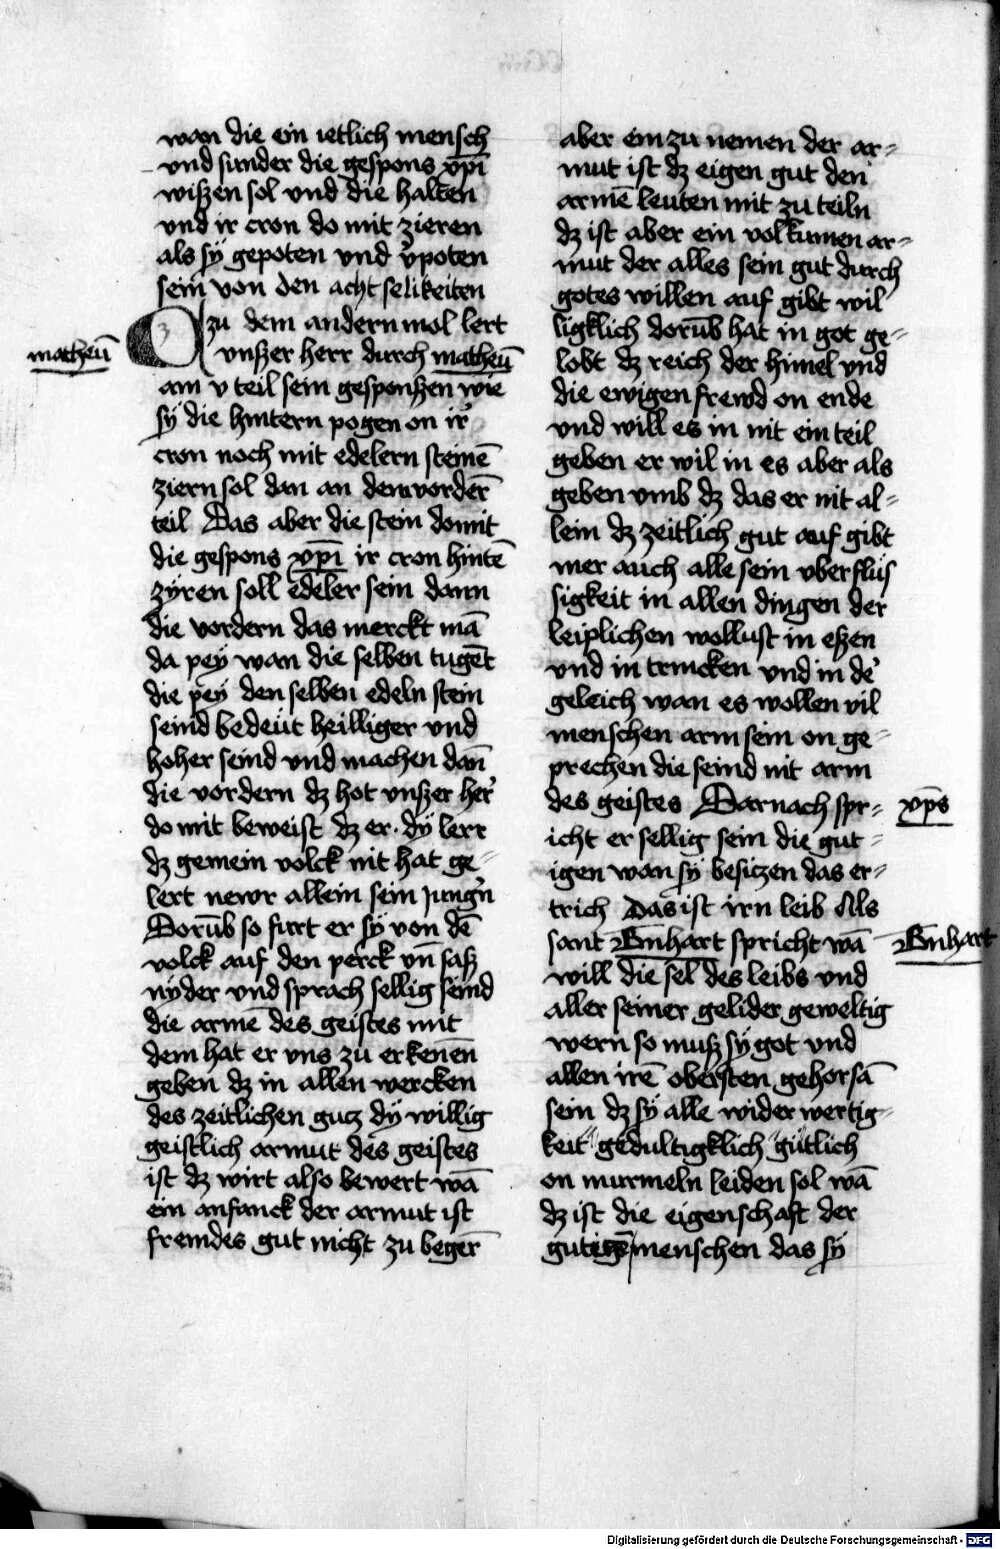 wan die ein ietlich mensch
vnd sunder die gespons xp̄i
wißen sol vnd die halten
vnd ir cron do mit zieren
als sÿ gepoten vnd v̕poten
sein von den acht selikeiten
Zu dem andern mol lert
matheū
vnßzer herr durch matheū
am v teil sein gesponßen wie
sÿ die hintern pogen on ir̕
cron noch mit edelern steinē
ziern sol dan an dem vorderē
teil Das aber die stein domit
die gespons xp̄i ir cron hintē
zÿren soll edeler sein dann
die vordern das merckt mā
da peÿ wan die selben tugēt
die peÿ den selben edeln stein
seind bedeüt heilliger vnd
hoher seind vnd machen dan̄
die vordern dz hot vnßzer her̕
do mit beweist dz er dÿ lerr
dz gemein volck nit hat ge⸗
lert newr allein sein jung̕n
Dorūb so furt er sÿ von dē
volck auf den perck vn̄ saß
nÿder vnd sprach sellig seind
die armē des geistes mit
dem hat er vns zu erkenēn
geben dz in allen wercken
des zeitlichen gutz dÿ willig
geistlich armut des geistes
ist dz wirt also bewert wā
ein anfanck der armut ist
fremdes gut nicht zu begerē
aber ein zu nemen der ar⸗
mut ist dz eigen gut den
armē leuten mit zu teiln
dz ist aber ein volkumen ar⸗
mut der alles sein gut durch
gotes willen auf gibt wil
ligklich dorūb hat in got ge⸗
lobt dz reich der himel vnd
die ewigen frewd on ende
vnd will es in nit ein teil
geben er wil in es aber als
geben vmb dz das er nit al⸗
lein dz zeitlich gut auf gibt
mer auch alle sein vberflüs
sigkeit in allen dingen der
leiplichen wollust in eßen
vnd in trincken vnd in de̕
geleich wan es wollen vil
menschen arm sein on ge⸗
prechen die seind nit arm
des geistes Darnach spr⸗
xp̄s
icht er sellig sein die gut⸗
igen wan sÿ besitzen das er⸗
trich Das ist irn leib Als
sant Bn̄hart spricht wā
Bn̄hart
will die sel des leibs vnd
aller seiner gelider geweltig
wern so muß sÿ got vnd
allen irē obersten gehorsā
sein dz sÿ alle wider wertig⸗
keit gedultigklich gütlich
on murmeln leiden sol wā
dz ist die eigenschaft der
gutigē menschen das sÿ
Digitalisierung gefördert durch die Deutsche Forschungsgemeinschaft - DFG